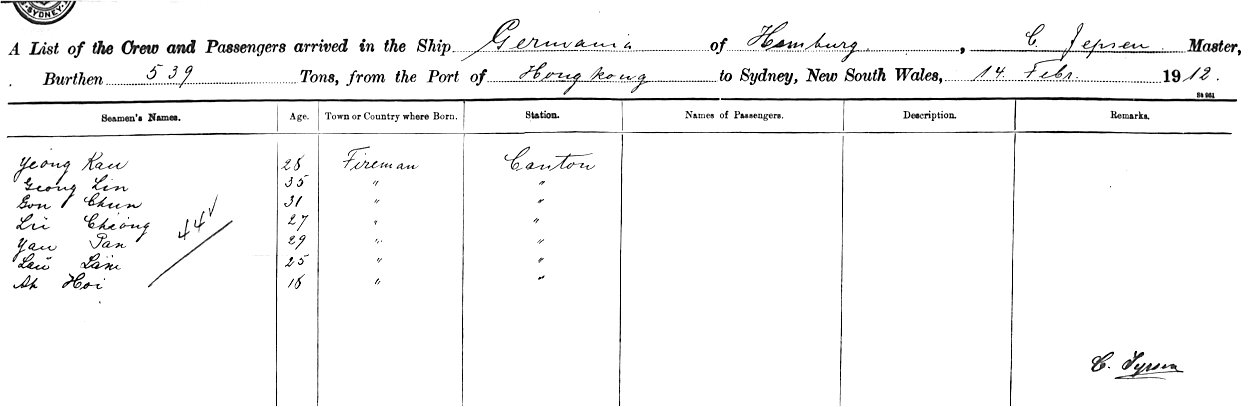 SYDNEY
A List of the Crew and Passengers arrived in the Ship Germania of Hamburg, C. Jepsen Master,
Burthen 539 Tons, from the Port of Hongkong to Sydney, New South Wales, 14 Febr. 1912.
St 961
Seamen's Names. Age. Town or Country where Born. Station. Names of Passengers. Description. Remarks.
Yeong Kau 28 Fireman Canton
Geong Lin 35 " "
Gon Chun 31 " "
Lii Cheong 27 " "
Yau Pan 29 " "
Laü Lam 25 " "
Ah Hoi 18 " "
44 ✓
C.